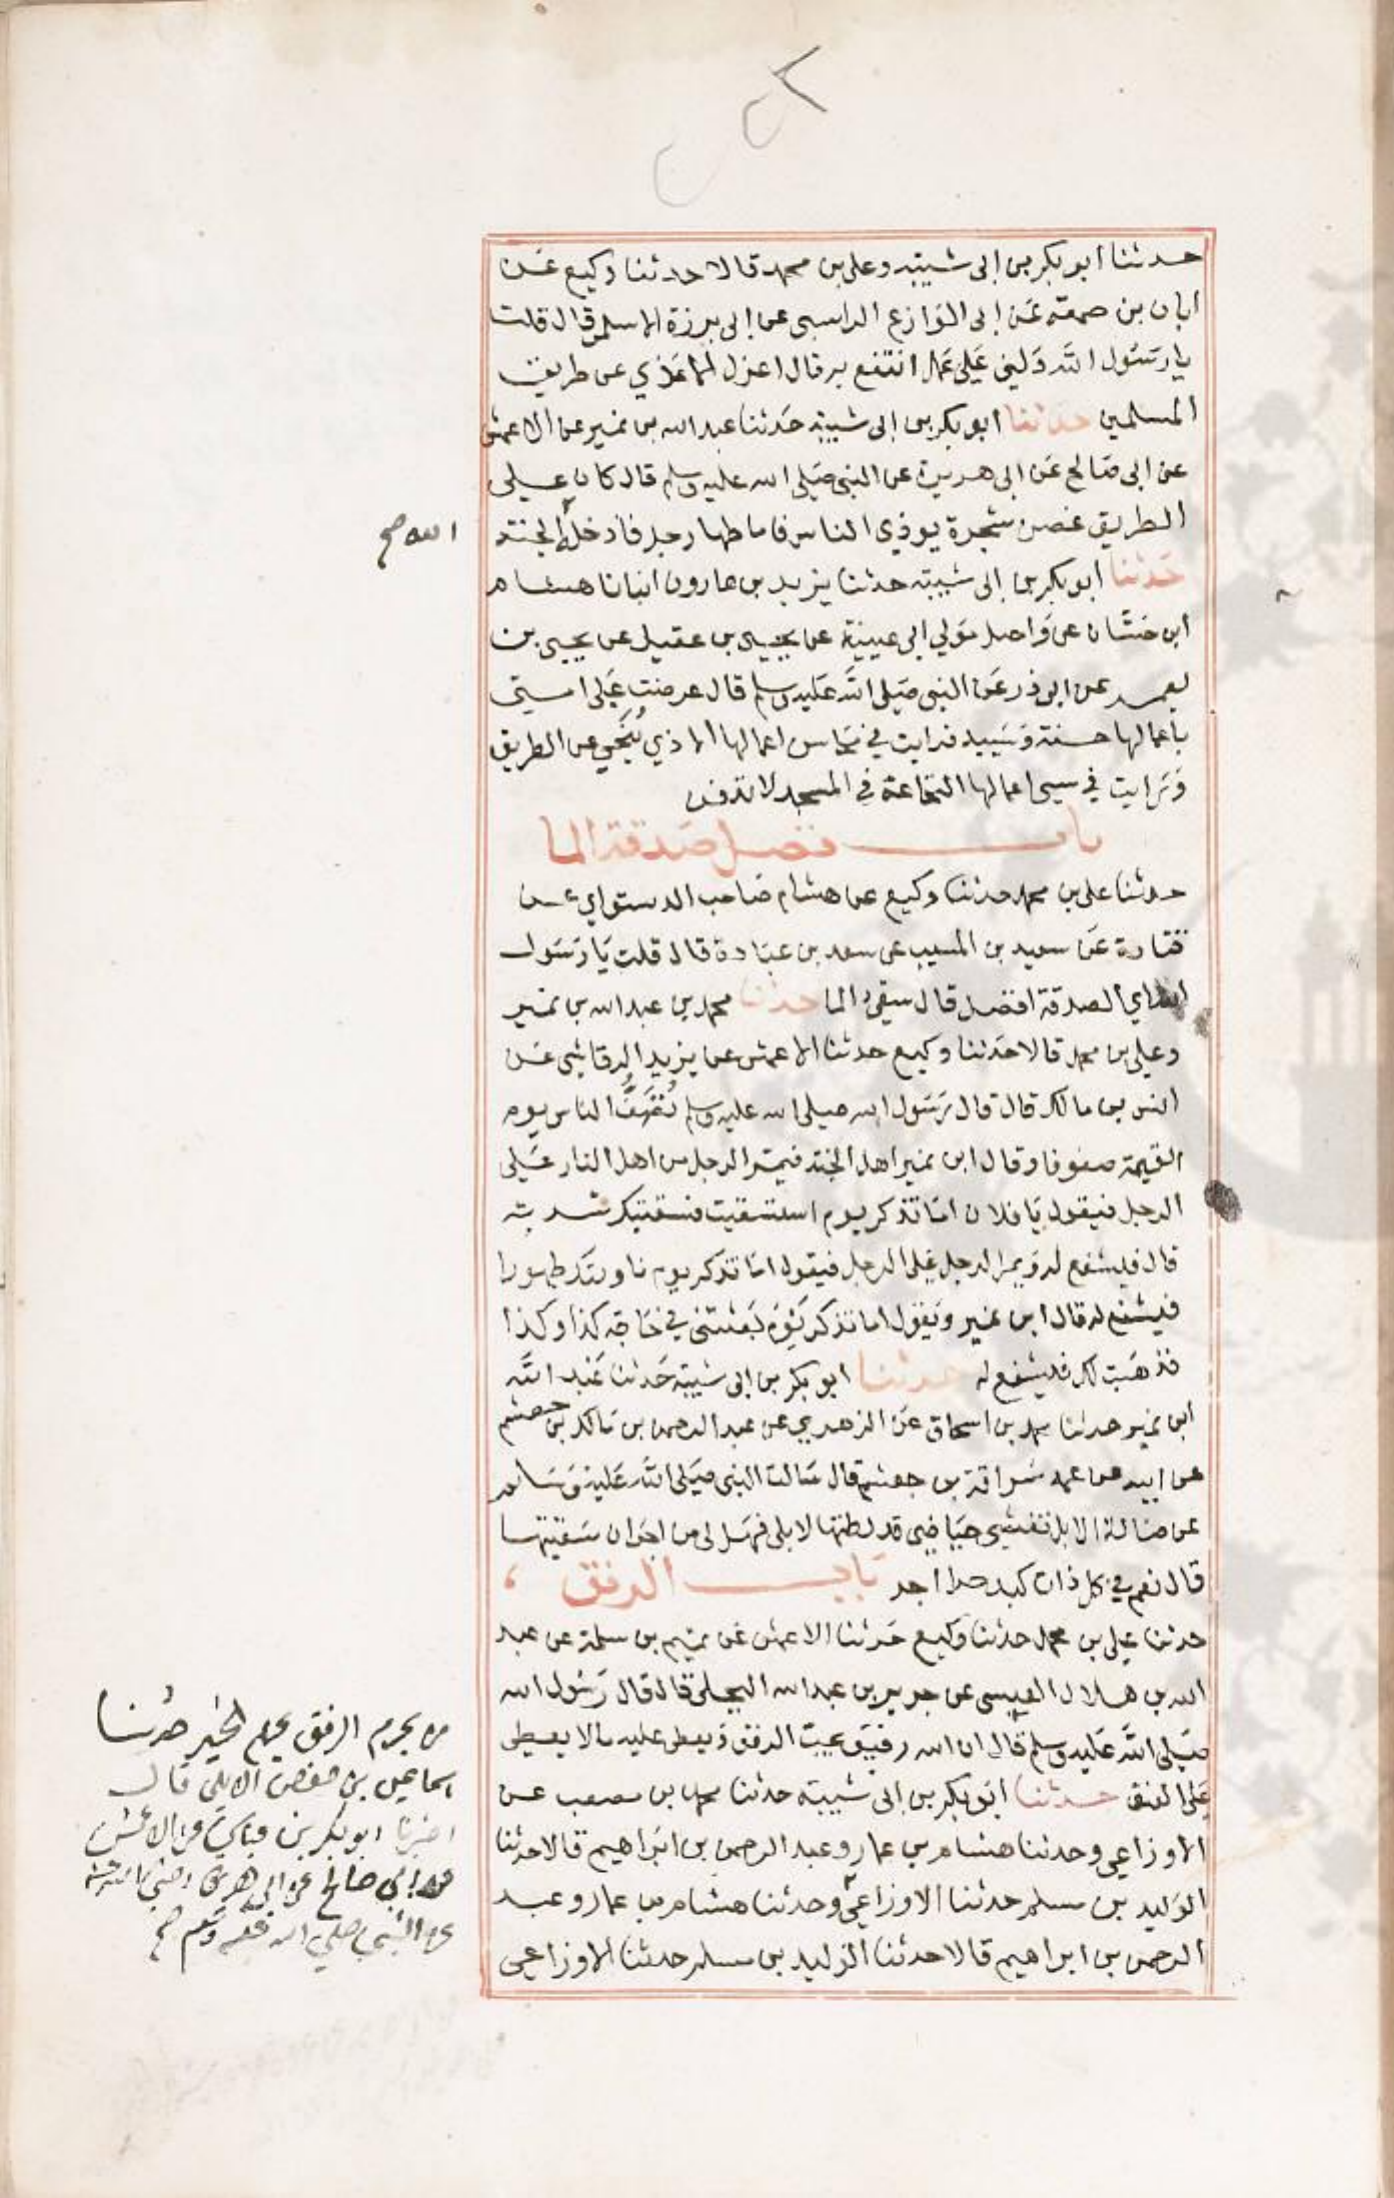 حدثنا ابو بكر بن ابى شيبة وعلى بن محمد قالا حدثنا وكيع عَن
ابان بن صمعة عَن ابى الوَازع الراسبى عن ابى برزة الاسلمى قال قلت
يا رَسُول الله دَلنى عَلى عَمَل انتفع به قال اعزل الاذي عن طريق
المسلمين حدثنا ابو بكر بن ابى شيبة حَدثنا عبد الله بن نمير عن الاعمش
عن ابى صَالح عَن ابى هريرة عن النبى صَلى الله عليه وسلم قال كان على
الطريق غصن شجرة يوذي الناس فاماطها رجل فادخله الجنة
الله صح
حَدثنا ابو بكر بن ابى شيبة حدثنا يزيد بن هارون انبانا هشام
ابن حسَّان عن وَاصل مَولي ابى عيينة عن يحيى بن عقيل عن يحيى بن
يعمر عن ابى ذر عَن النبى صَلى الله عَليه وسلم قال عرضت عَلى امتى
باعمالها حسنة وَسَييه فرايت في محَاسن اعمالها الاذي يُنَحَّي عن الطريق
وَرَايت في سيى اعمالها النخاعة في المسجد لا تدفن
باب فضل صَدقة الما
حدثنا على بن محمد حدثنا وكيع عن هشام صَاحب الدستواي عن
قتادة عَن سعيد بن المسيب عن سعد بن عبَادة قال قلت يَا رَسَول
الله اي الصدقة افضل قال سقي الما حدثنا محمد بن عبد الله بن نمير
وعلى بن محمد قالا حَدثنا وكيع حدثنا الاعمش عن يزيد الرقاشى عَن
انس بن مالك قال قال رَسَول الله صلى الله عليه وسلم يُصَفُّ الناس يوم
القيمة صفوفا وقال ابن نمير اهل الجنة فيمَر الرجل من اهل النار عَلى
الرجل فيقول يَا فلان امَا تذكر يوم استسقيت فسقيتك شربة
قال فيشفع له وَيمر الرجل عَلى الرجل فيقول امَا تذكر يوم ناولتك طهورا
فيشفع له قال ابن نمير وَيقول اما تذكر يَوم بَعثتنى في حَاجة كذا وكذا
فذهبَت لك فيشفع له حدثنا ابو بكر بن ابى شيبة حَدثنا عَبد الله
ابن نمير حدثنا محمد بن اسحاق عَن الزهري عن عبد الرحمن بن مَالك بن جعشم
عن ابيه عن عمه سَراقة بن جعشم قال سَالت النبى صَلى الله عَليه وَسَلم
عن ضالة الابل تغشى حيَاضى قد لطتها لابلى فهَل لى من اجر ان سَقيتها
قال نعم في كل ذات كبد حرا اجر بَاب الرفق
حدثنا على بن محمد حدثنا وَكيع حَدثنا الاعمش عَن تميم بن سلمة عن عبد
الله بن هلال العبسى عن جرير بن عبد الله البجلى قال قال رَسُول الله
صَلى الله عَليه وسلم قال ان الله رفيق يحب الرفق وَيعطى عليه مالا يعطى
عَلى العنف حدثنا ابَو بكر بن ابى شيبة حدثنا محمد بن مصعب عن
الاوزاعى وحدثنا هشام بن عمار وعبد الرحمن بن ابرَاهيم قالا حدثنا
الوَليد بن مسلم حدثنا الاوزاعى وحدثنا هشام بن عمار وعبد
الرحمن بن ابراهيم قالا حدثنا الوَليد بن مسلم حدثنا الاوزاعى
من يحرم الرفق يحرم الخير حدثنا
اسماعيل بن حفص الابلي قال
اخبرنا ابو بكر بن عياش عن الاعمش
عن ابي صالح عن ابي هريرة رضي الله عنه
عن النبي صلي الله عليه وسلم صح